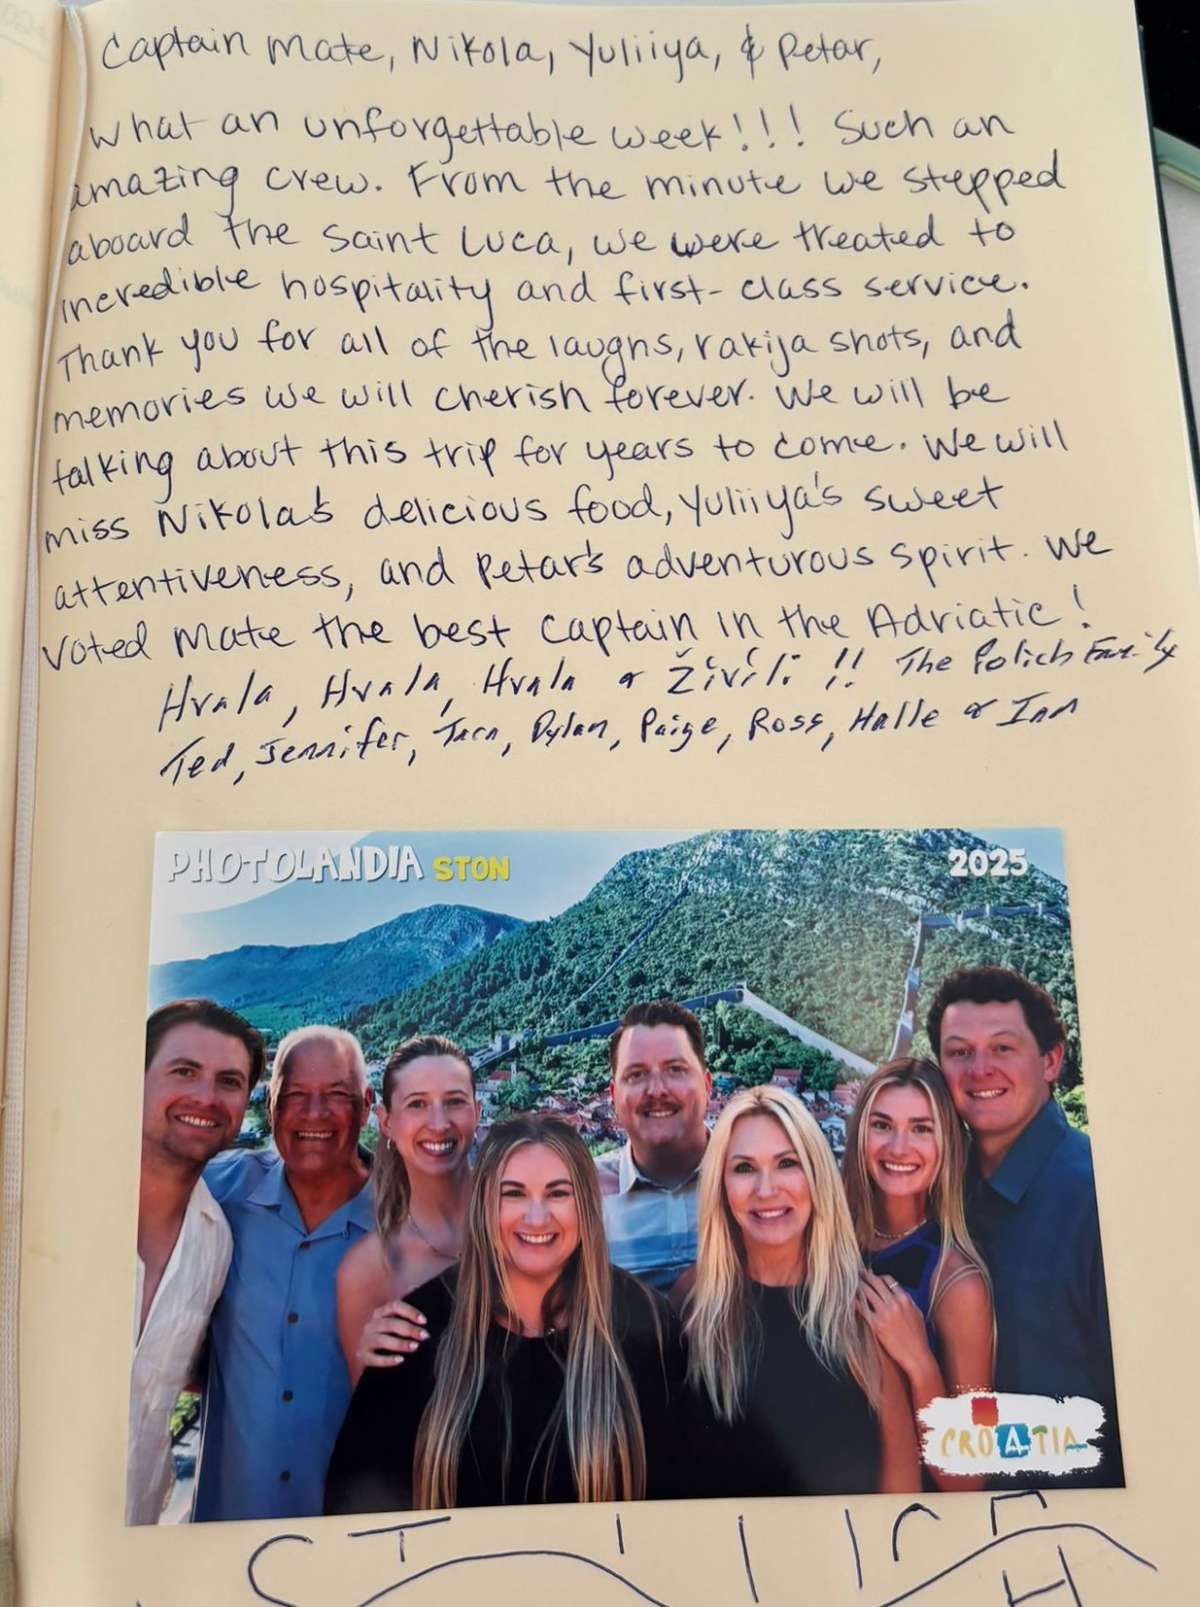 Captain Mate, Nikola, Yuliiya, & Petar,
What an unforgettable week!!! Such an
amazing crew. From the minute we stepped
aboard the Saint Luca, we were treated to
incredible hospitality and first-class service.
Thank you for all of the laughs, rakija shots, and
memories we will cherish forever. We will be
talking about this trip for years to come. We will
miss Nikola's delicious food, Yuliiya's sweet
attentiveness, and Petar's adventurous spirit. We
voted Mate the best Captain in the Adriatic!
Hvala, Hvala, Hvala & Živili!! The Polich Family
Ted, Jennifer, Tara, Dylan, Paige, Ross, Halle & Ian
PHOTOLANDIA STON
2025
CROATIA